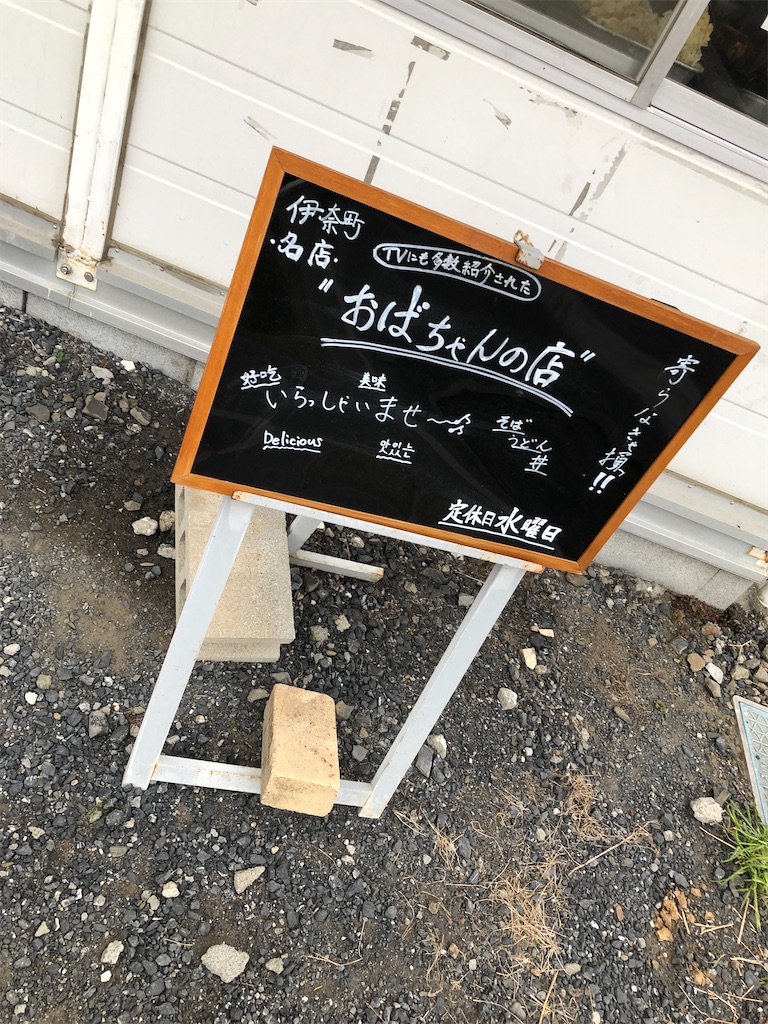 伊奈町
・名店・
TVにも多数紹介された
"おばちゃんの店"
好吃
美味
いらっしゃいませ〜♪
Delicious
맛있는
そば
うどん
丼
寄らなきゃ損!!
定休日水曜日